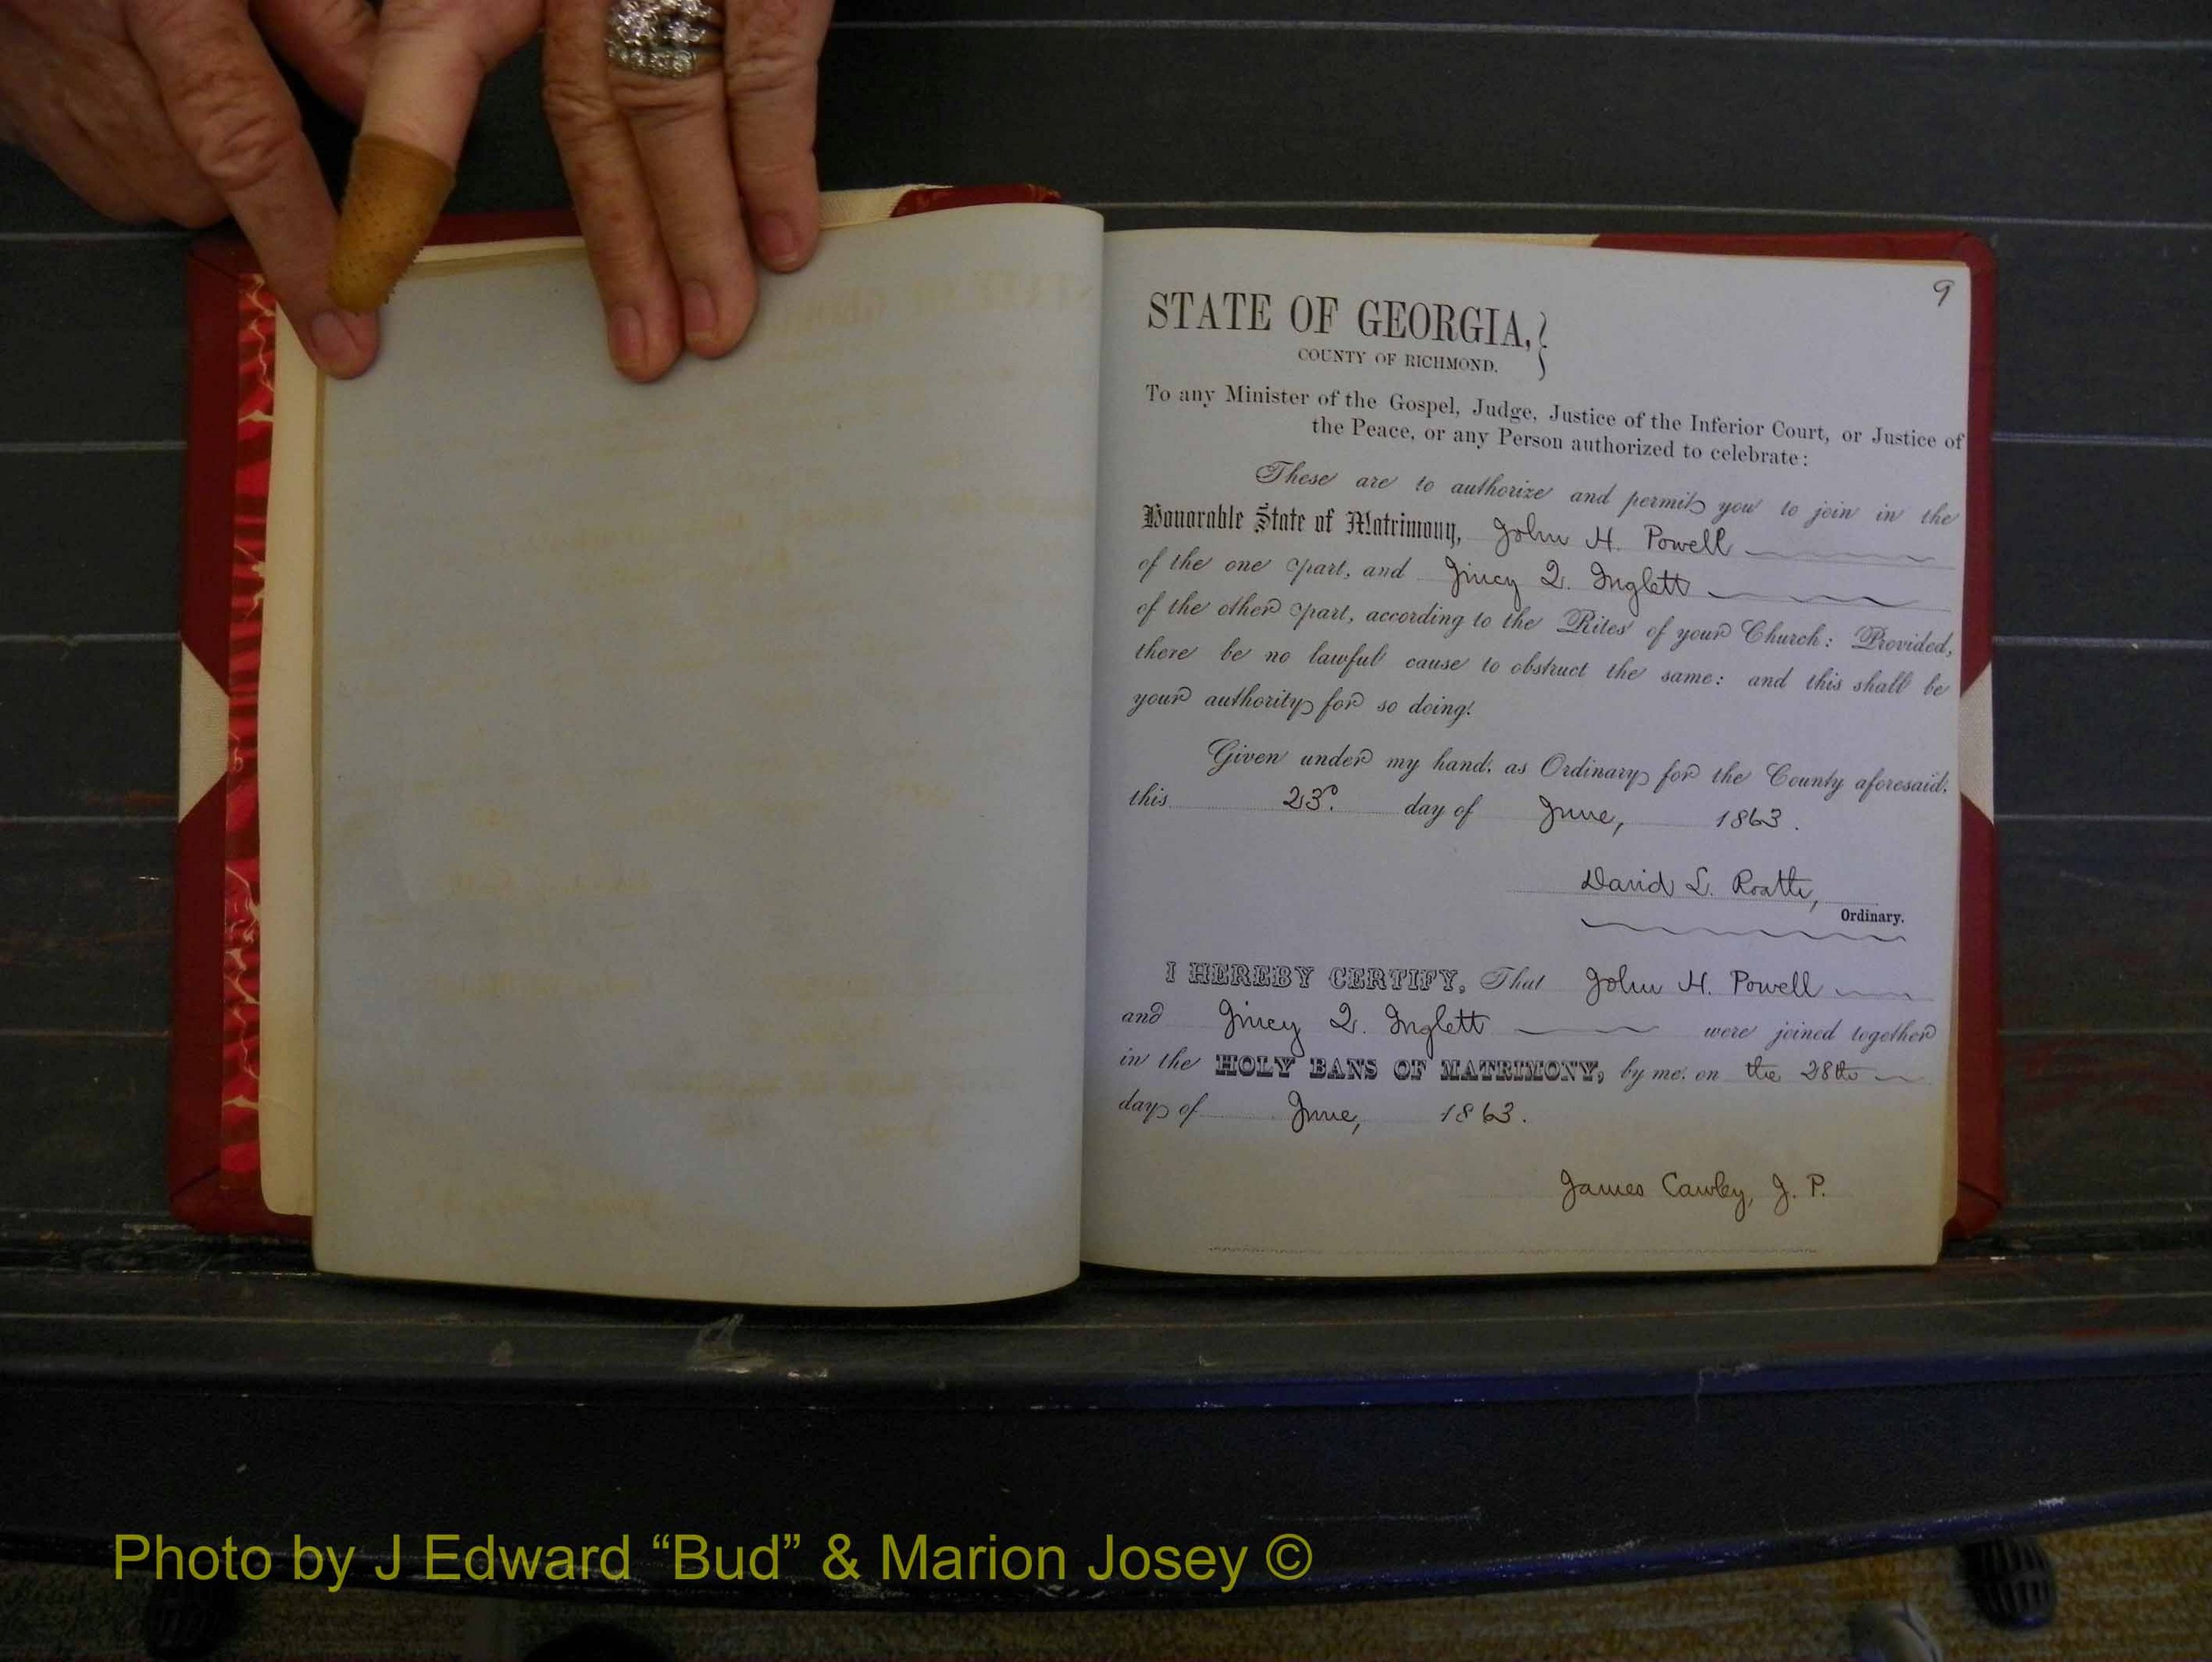 9
STATE OF GEORGIA,
COUNTY OF RICHMOND.
To any Minister of the Gospel, Judge, Justice of the Inferior Court, or Justice of
the Peace, or any Person authorized to celebrate:
These are to authorize and permit you to join in the
Honorable State of Matrimony, John H. Powell
of the one part, and Jincy Q. Inglett
of the other part, according to the Rites of your Church: Provided,
there be no lawful cause to obstruct the same: and this shall be
your authority for so doing!
Given under my hand, as Ordinary for the County aforesaid,
this 23d. day of June, 1863.
David L. Roath,
Ordinary.
I HEREBY CERTIFY, That John H. Powell
and Jincy Q. Inglett were joined together
in the HOLY BANS OF MATRIMONY, by me, on the 28th
day of June, 1863.
James Cawley, J. P.
Photo by J Edward “Bud” & Marion Josey ©